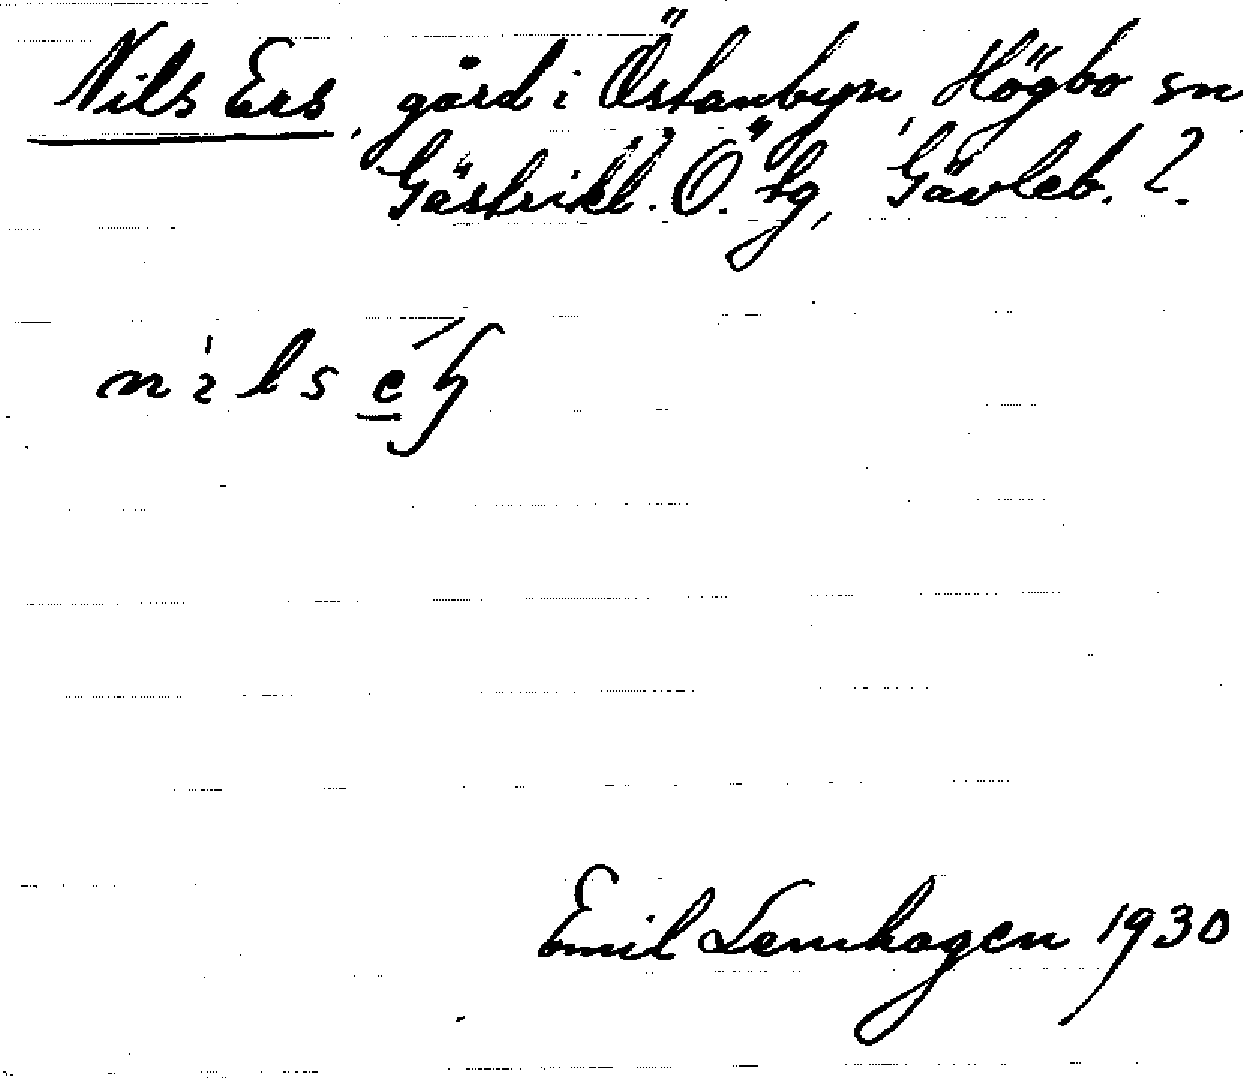 Nils Ers, gård i Östanbyn, Högbo sn
Gästrikl. Ö. tg, Gävleb. l.
nils
Emil Lemhagen 1930